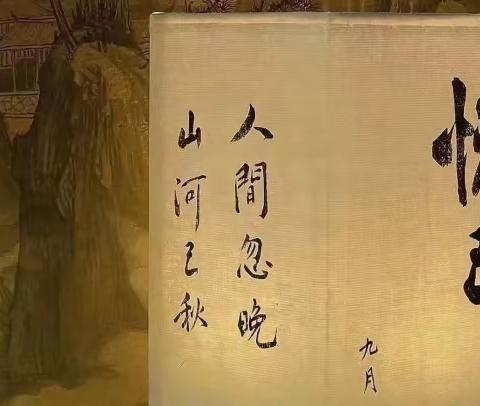 九月
人間忽晚
山河已秋